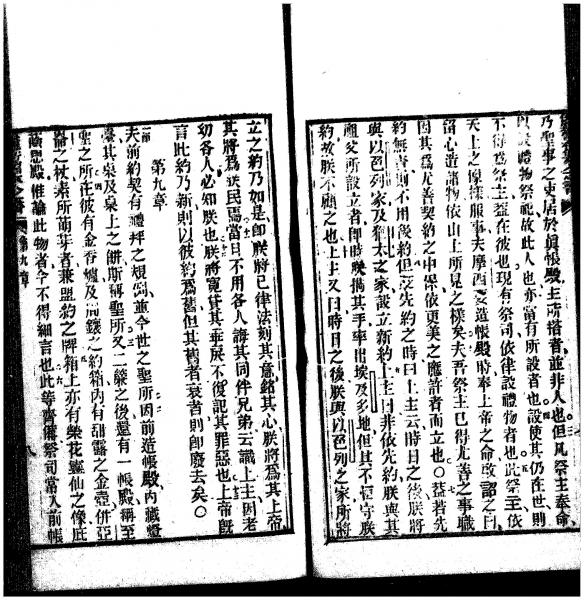 乃聖事之吏居於眞帳殿主所搭者並非人也但凡祭主奉命
以設禮物祭祀故此人也亦當有所設者也設使其仍在世則
不得爲祭主蓋在彼也現有祭司依律設禮物者也此祭主依
天上之原樣服事夫摩西要造帳殿時奉上帝之命啟詔之曰
留心造諸物依山上所見之樣矣夫吾祭主已得尤善之事職
因其爲尤善契約之中保依更美之應許者而立也○益若先
約無責則不用後約但受先約之時曰上主云時日之後朕將
與以色列家及猶太之家設立新約上主曰非依先約朕與其
祖父所設立者即時朕攜其手率出埃及多地但其不恆守朕
約故朕不顧之也上主又曰時日之後朕與以色列之家所將
立之約乃如是即朕將己律法刻其意銘其心朕將爲其上帝
其將爲送民當日不用各人誨其同伴兄弟云識上主因老
幼各人必知朕也朕將寬貸其乖戾不復記其罪惡也上帝旣
言此約乃新則以彼約爲舊但其舊者衰者則卽廢去矣○
第九章
夫前約契有禮拜之規例並今世之聖所因前造帳殿內藏燈
臺其桌及桌上之餅斯稱聖所又二㡘之後還有一帳殿稱至
聖之所在彼有金香爐及周鑲之約箱內有甜露之金壺併亞
倫之杖素所萌芽者兼盟約之牌箱上亦有榮花靈仙之像庇
蔭恩殿惟論此物者今不得細言也此等齊備祭司當入前帳
第九章